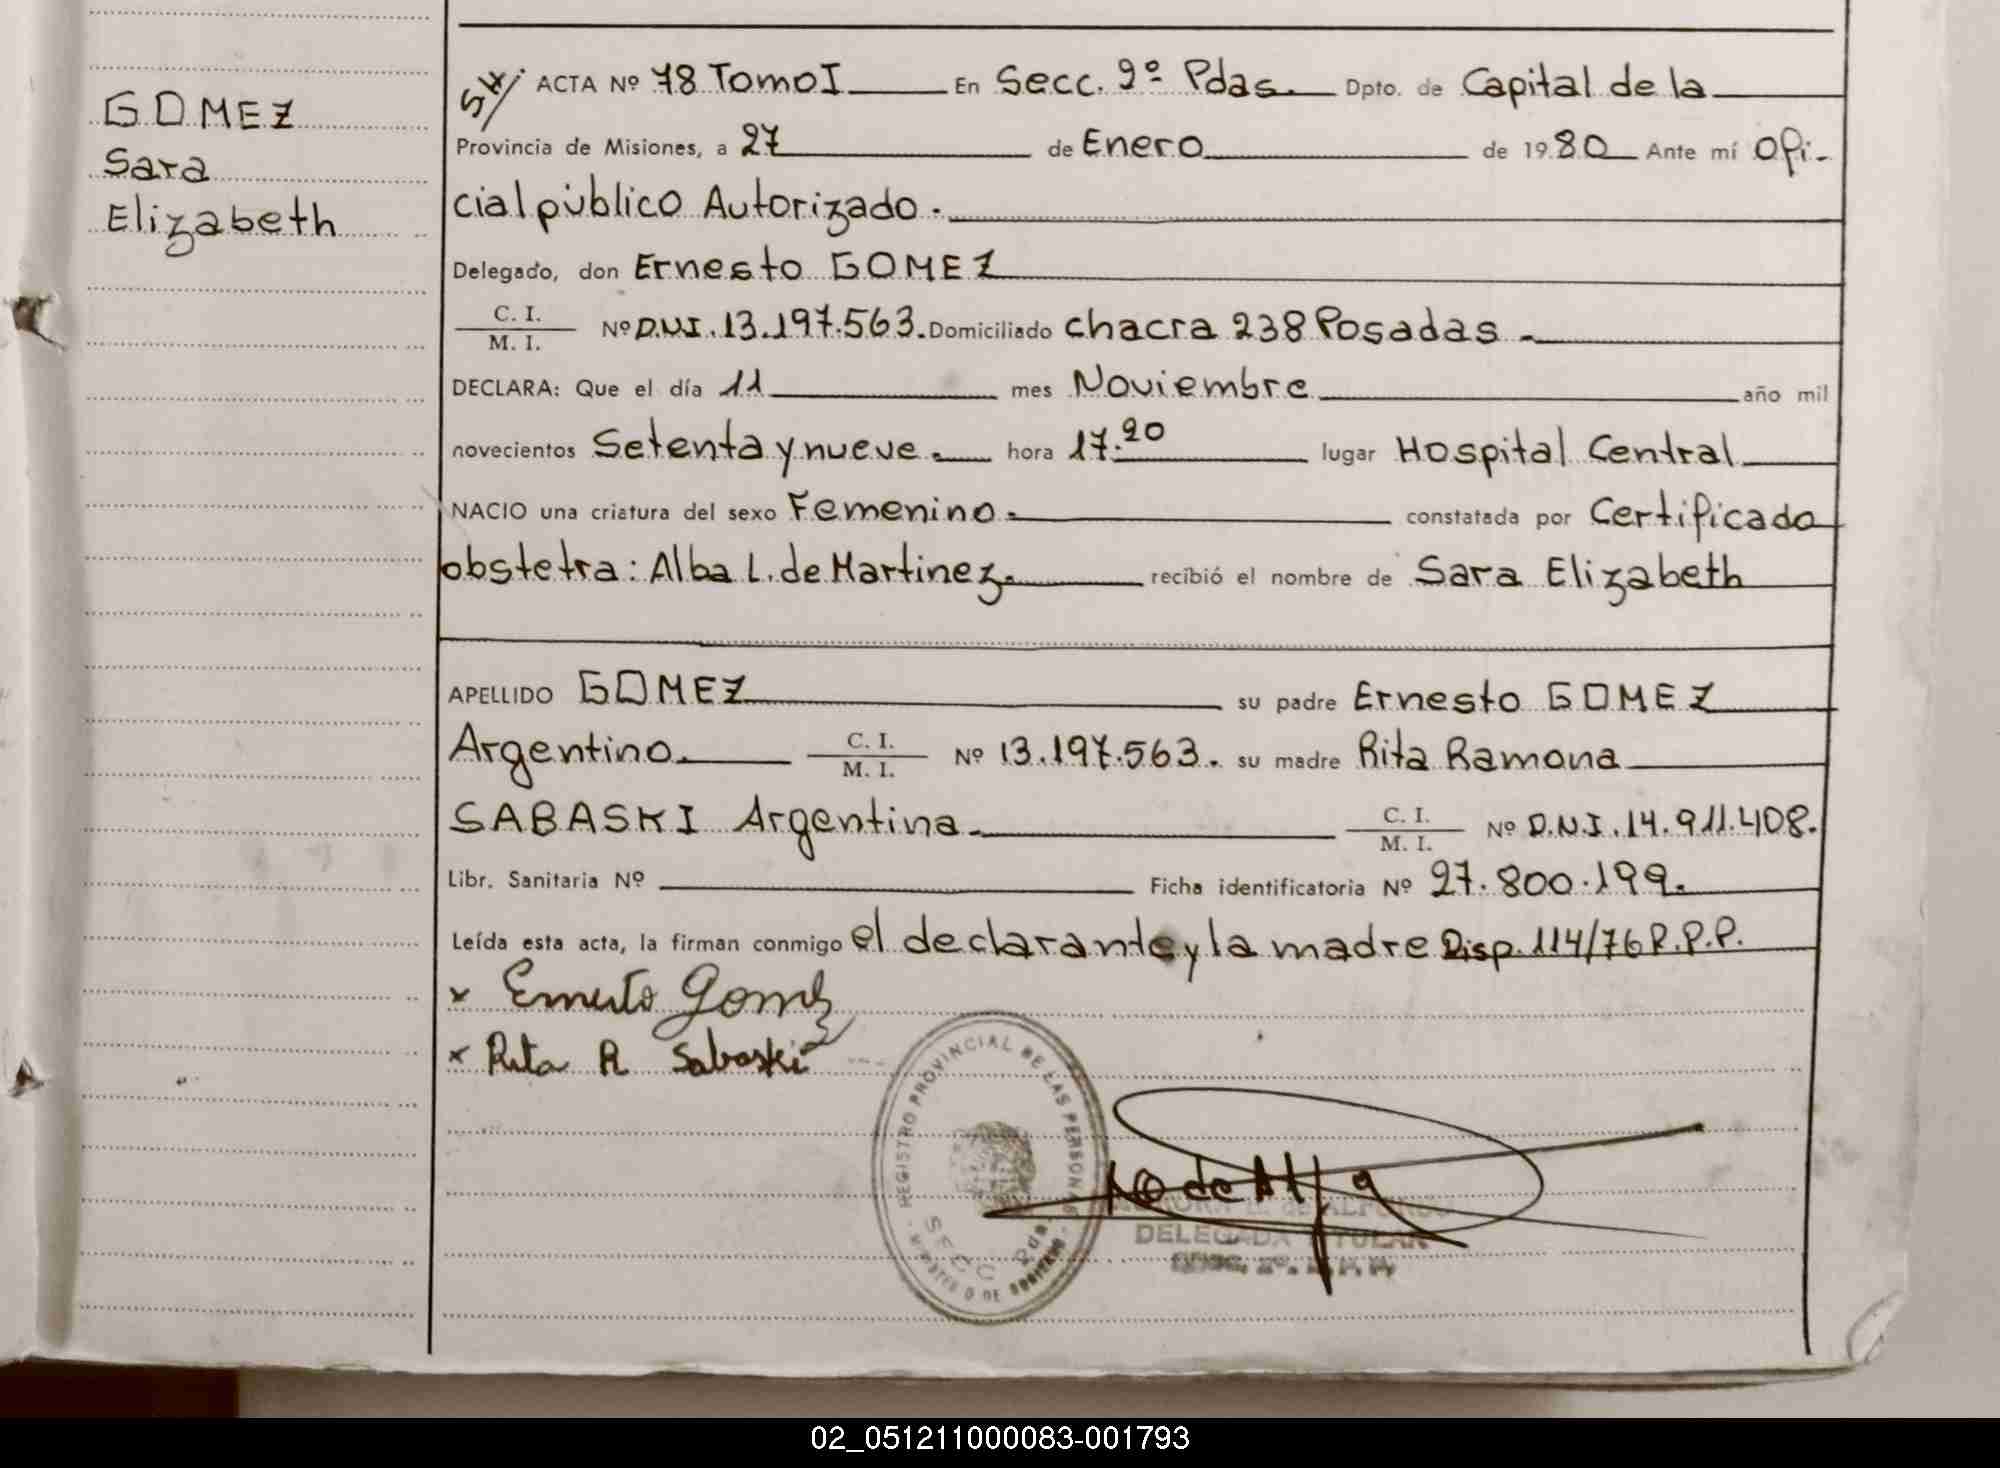 GOMEZ
Sara
Elizabeth
54/ ACTA Nº 78 Tomo I En Secc. 9º Pdas. Dpto. de Capital de la
Provincia de Misiones, a 27 de Enero de 1980 Ante mí Ofi-
cial público Autorizado.
Delegado, don Ernesto GOMEZ
C. I.
M. I. Nº D.N.I. 13.197.563. Domiciliado chacra 238 Posadas -
DECLARA: Que el día 11 mes Noviembre año mil
novecientos Setenta y nueve. hora 17.20 lugar Hospital Central
NACIO una criatura del sexo Femenino. constatada por Certificado
obstetra: Alba L. de Martinez. recibió el nombre de Sara Elizabeth
APELLIDO GOMEZ su padre Ernesto GOMEZ
Argentino. C. I.
M. I. Nº 13.197.563. su madre Rita Ramona
SABASKI Argentina. C. I.
M. I. Nº D.N.I. 14.911.408.
Libr. Sanitaria Nº Ficha identificatoria Nº 27.800.199.
Leída esta acta, la firman conmigo el declarante y la madre Disp. 114/76 R.P.P.
x Ernesto Gomez
x Rita R Sabaski
REGISTRO PROVINCIAL DE LAS PERSONAS
SECC. Pdas.
de ALFONSO
DELEGADA TITULAR
02_051211000083-001793